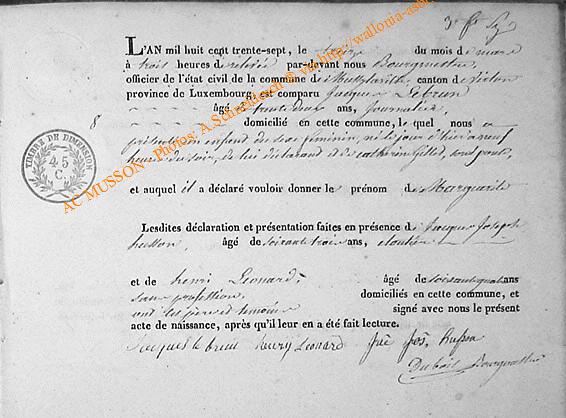 3e
L'AN mil huit cent trente-sept, le trois du mois de mars
à trois heures de relevée par-devant nous Bourgmestre,
officier de l'état civil de la commune de canton de Virton
province de Luxembourg, est comparu Jacques Lebrun
âgé de trente deux ans, journalier,
domicilié en cette commune, le quel nous a
8
présenté un enfant du sexe féminin, né le jour d'hier à neuf
heures du soir, de lui déclarant et de catherine Gillet, son épouse,
et auquel il a déclaré vouloir donner le prénom de Marguerite
Lesdites déclaration et présentation faites en présence de Jacques Joseph
husson, âgé de soixante trois ans, cloutier
et de henri Léonard, âgé de soixante quatre ans
sans profession, domiciliés en cette commune, et
ont les père et témoins signé avec nous le présent
acte de naissance, après qu'il leur en a été fait lecture.
Jacques le brun henry Leonard Jos. husson
Dubois Bourgmestre
TIMBRE DE DIMENSION
45
C.
AC MUSSON - Photos: A.Schneickert @ via http://wallonia-asb